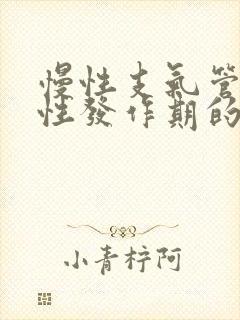 慢性支氣管
性發作期的
小青梓阿